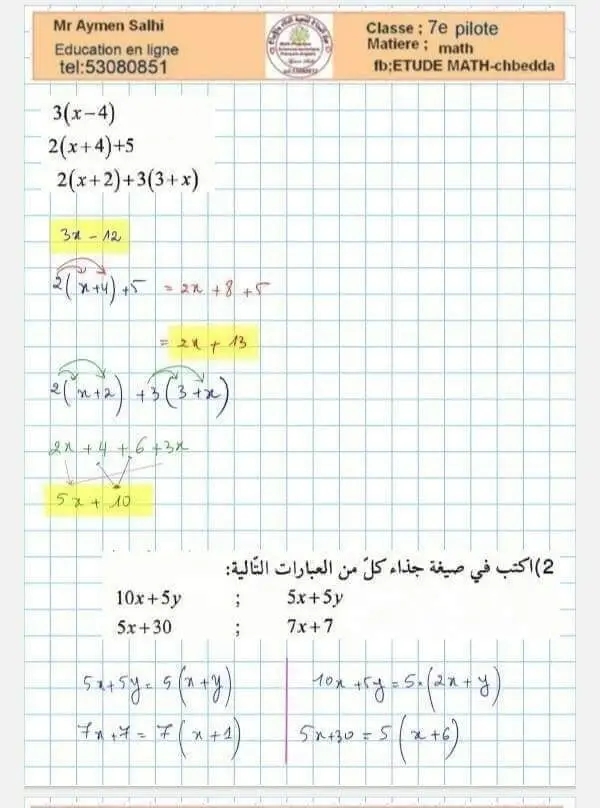 Mr Aymen Salhi
Education en ligne
tel:53080851
Classe ; 7e pilote
Matiere ; math
fb;ETUDE MATH-chbedda
3(x−4)
2(x+4)+5
2(x+2)+3(3+x)
3x − 12
2(x+4)+5 = 2x + 8 + 5
= 2x + 13
2(x+2) + 3(3+x)
2x + 4 + 6 + 3x
5x + 10
2)اكتب في صيغة جذاء كلّ من العبارات التّالية:
10x+5y ; 5x+5y
5x+30 ; 7x+7
5x+5y = 5(x+y)
7x+7 = 7(x+1)
10x+5y = 5·(2x+y)
5x+30 = 5(x+6)